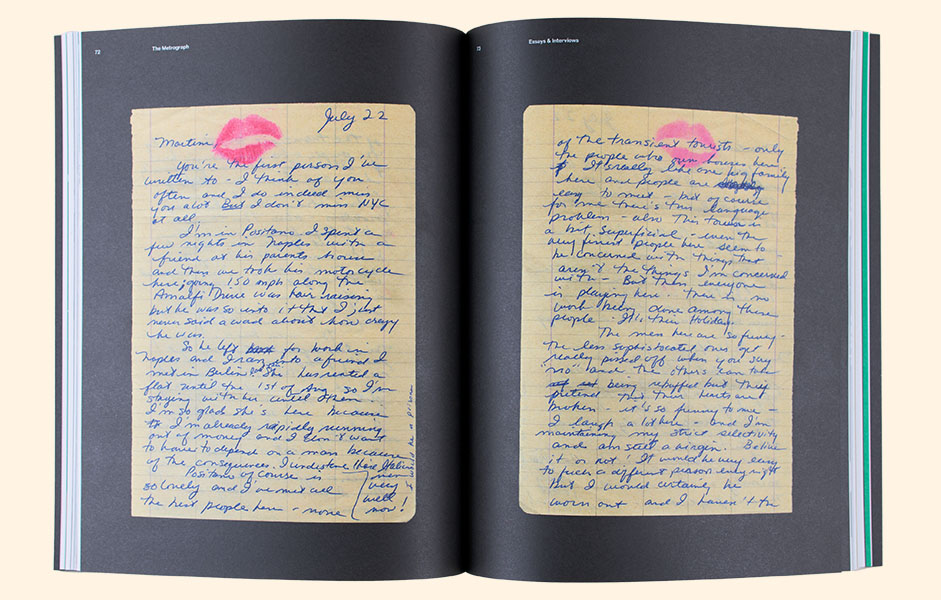 72
The Metrograph
July 22
Martine,
You're the first person I've
written to - I think of you
often and I do indeed miss
you alot But I don't miss NYC
at all.
I'm in Positano. I spent a
few nights in Naples with a
friend at his parents house
and then we took his motocycle
here; going 150 mph along the
Amalfi Drive was hair raising
but he was so into it that I just
never said a word about how crazy
he was.
So he left for work in
Naples and I ran into a friend I
met in Berlin She has rented a
flat until the 1st of Aug so I'm
staying with her until then.
I'm so glad she's here because
I'm already rapidly running
out of money and I don't want
to have to depend on a man because
of the consequences. I understand these Italian
men
very
well
now!
I would be a prisoner
Positano of course is
so lovely and I've met all
the best people here - none
73
Essays & Interviews
of the transient tourists - only
the people who own houses here
It's really like one big family
here and people are
easy to meet - but of course
for me there's this language
problem - also this town is
a bit superficial - even the
very finest people here seem to
be concerned with things that
aren't the things I'm concerned
with - But then everyone
is playing here - there is no
work being done among these
people - It is their Holiday.
The men here are so funny -
the less sophisticated ones get
really pissed off when you say
"no" and the others can take
being rebuffed but they
pretend that their hearts are
broken - it's so funny to me -
I laugh a lot here - and I'm
maintaining my strict selectivity
and am still a virgin. Believe
it or not! It would be very easy
to fuck a different person every night
but I would certainly be
worn out and I haven't the